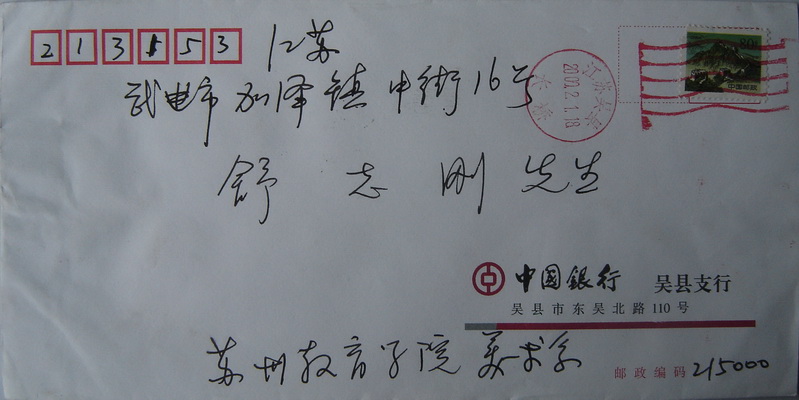 213153
江苏
武进市 加泽镇 中街16号
舒志刚 先生
中国邮政
中国銀行 吴县支行
吴县市东吴北路110号
苏州教育学院 美术系
邮政编码 215000